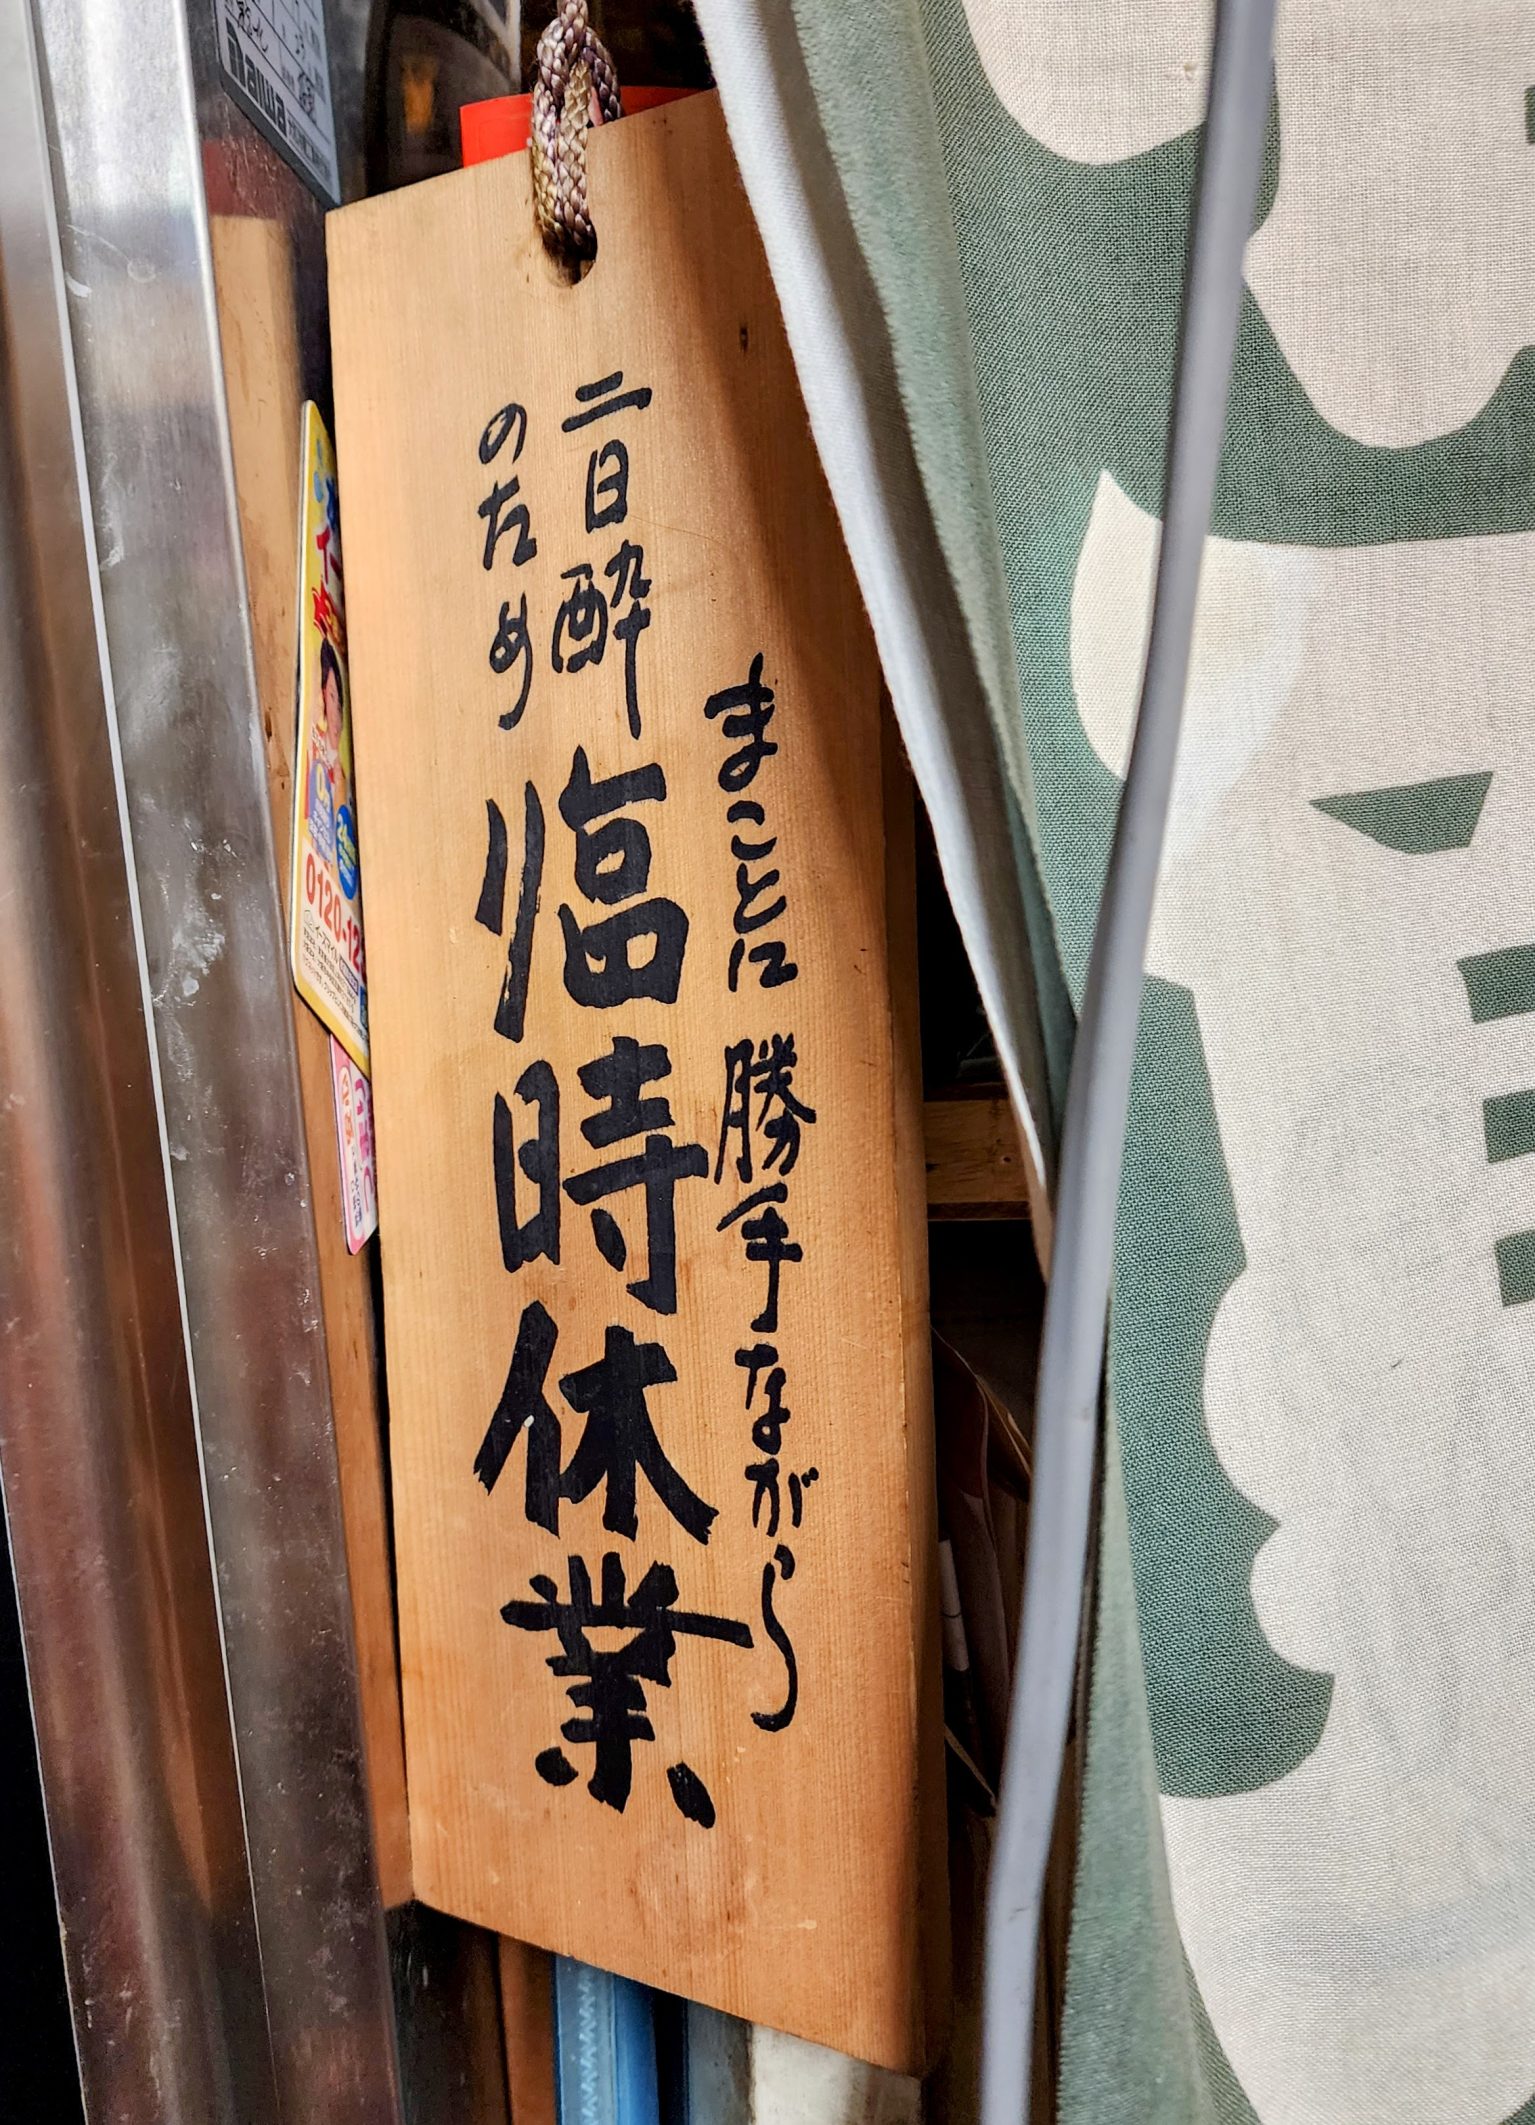 まことに勝手ながら
二日酔
のため
臨時休業
0120-12